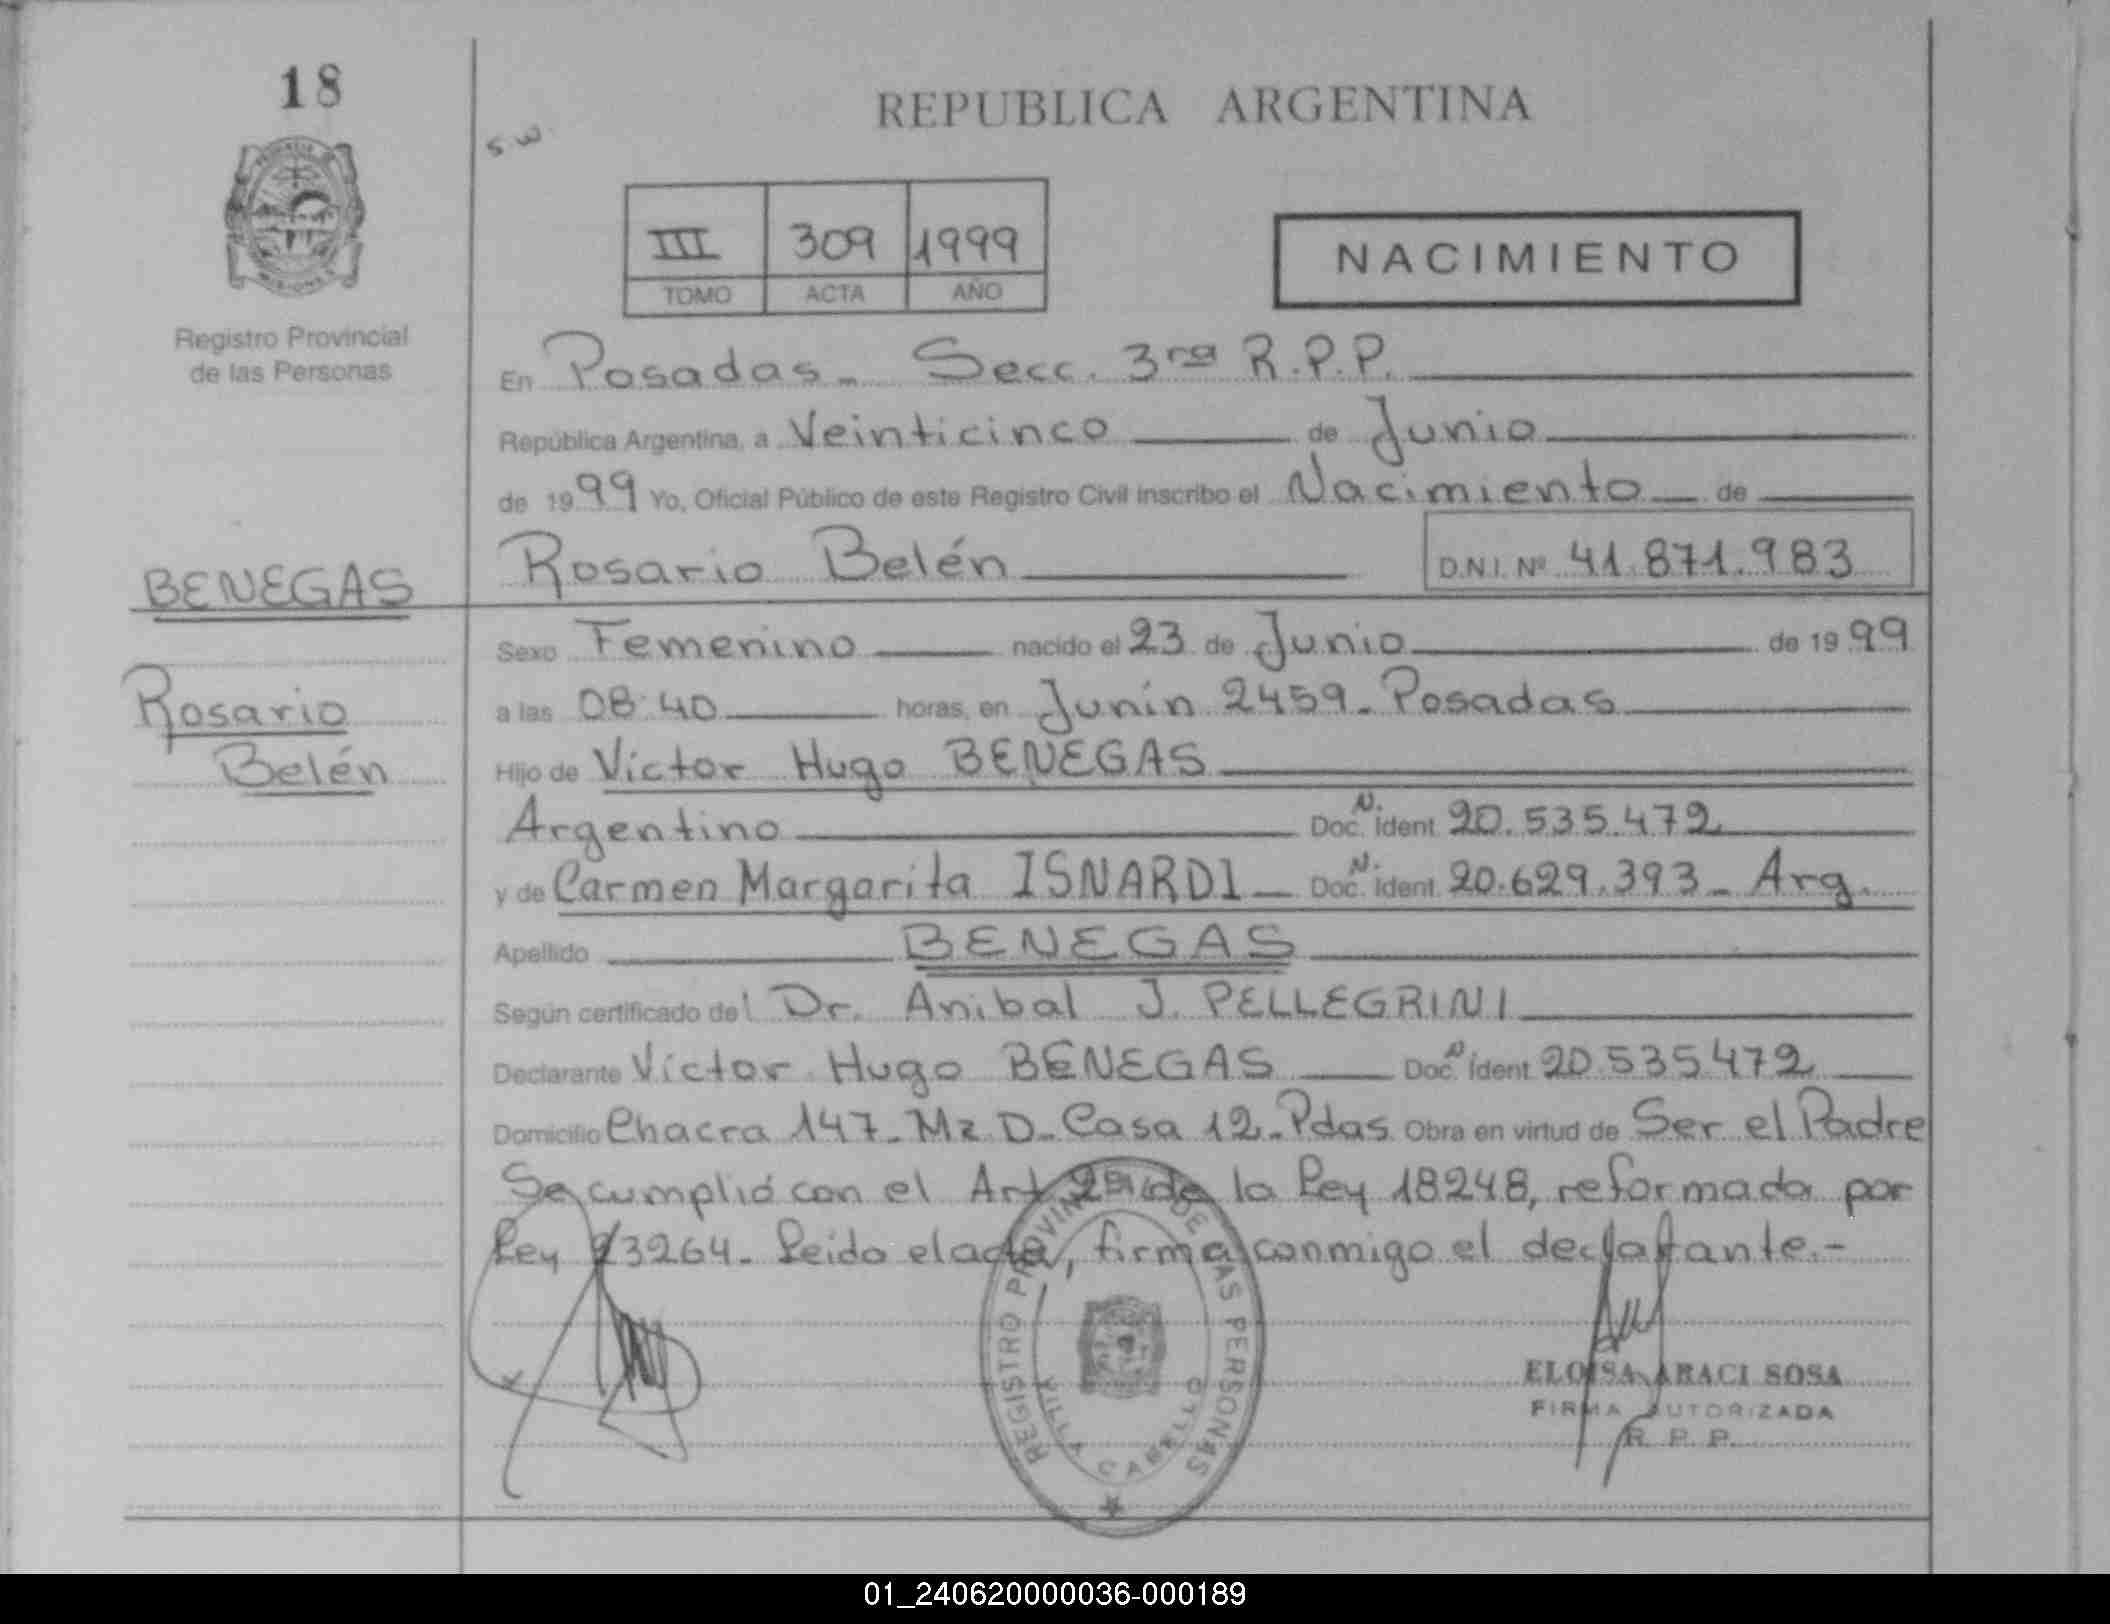 18
REPUBLICA ARGENTINA
s.w
III 309 1999
TOMO ACTA AÑO
NACIMIENTO
Registro Provincial
de las Personas
En Posadas - Secc. 3ra R.P.P.
República Argentina, a Veinticinco de Junio
de 1999 Yo, Oficial Público de este Registro Civil inscribo el Nacimiento de
BENEGAS
Rosario Belén D.N.I. Nº 41.871.983
Sexo Femenino nacido el 23 de Junio de 1999
Rosario
a las 08:40 horas, en Junin 2459 - Posadas
Belén
Hijo de Victor Hugo BENEGAS
Argentino Doc. N. Ident 20.535.472
y de Carmen Margarita ISNARDI - Doc. N. ident. 20.629.393 - Arg.
Apellido BENEGAS
Según certificado del Dr. Anibal J. PELLEGRINI
Declarante Victor Hugo BENEGAS Doc. N Ident 20.535.472
Domicilio Chacra 147 - Mz D - Casa 12 - Pdas. Obra en virtud de Ser el Padre
Se cumplió con el Art de la Ley 18248, reformada por
Ley 23264 - Leido el acta, firma conmigo el declarante.-
REGISTRO PROVINCIAL DE LAS PERSONAS
VILLA CABELLO
ELOISA ARACI SOSA
FIRMA AUTORIZADA
R. P. P.
01_240620000036-000189